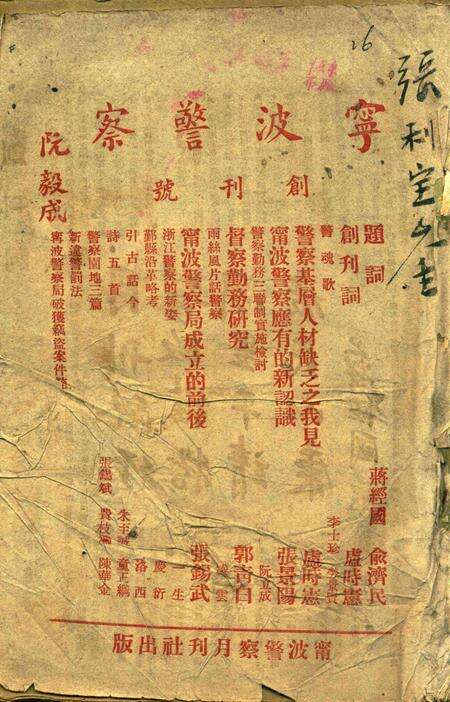 26
張利宝先生
寧波警察
創刊號
阮毅成
題詞
蔣經國 俞濟民
創刊詞
處時憲
警魂歌
李士珍
警察基層人材缺乏之我見
處時憲
甯波警察應有的新認識
張景陽
警察勤務三聯制實施檢討
阮 成
督察勤務研究
郭青白
雨絲風片話警察
雲
甯波警察局成立的前後
張錫武
浙江警察的新姿
一生
鄞縣沿革略考
慶衍
引古話今
洛西
詩五首
警察園地三篇
新違警罰法
甯波警察局破獲竊盜案件
甯波警察月刊社出版